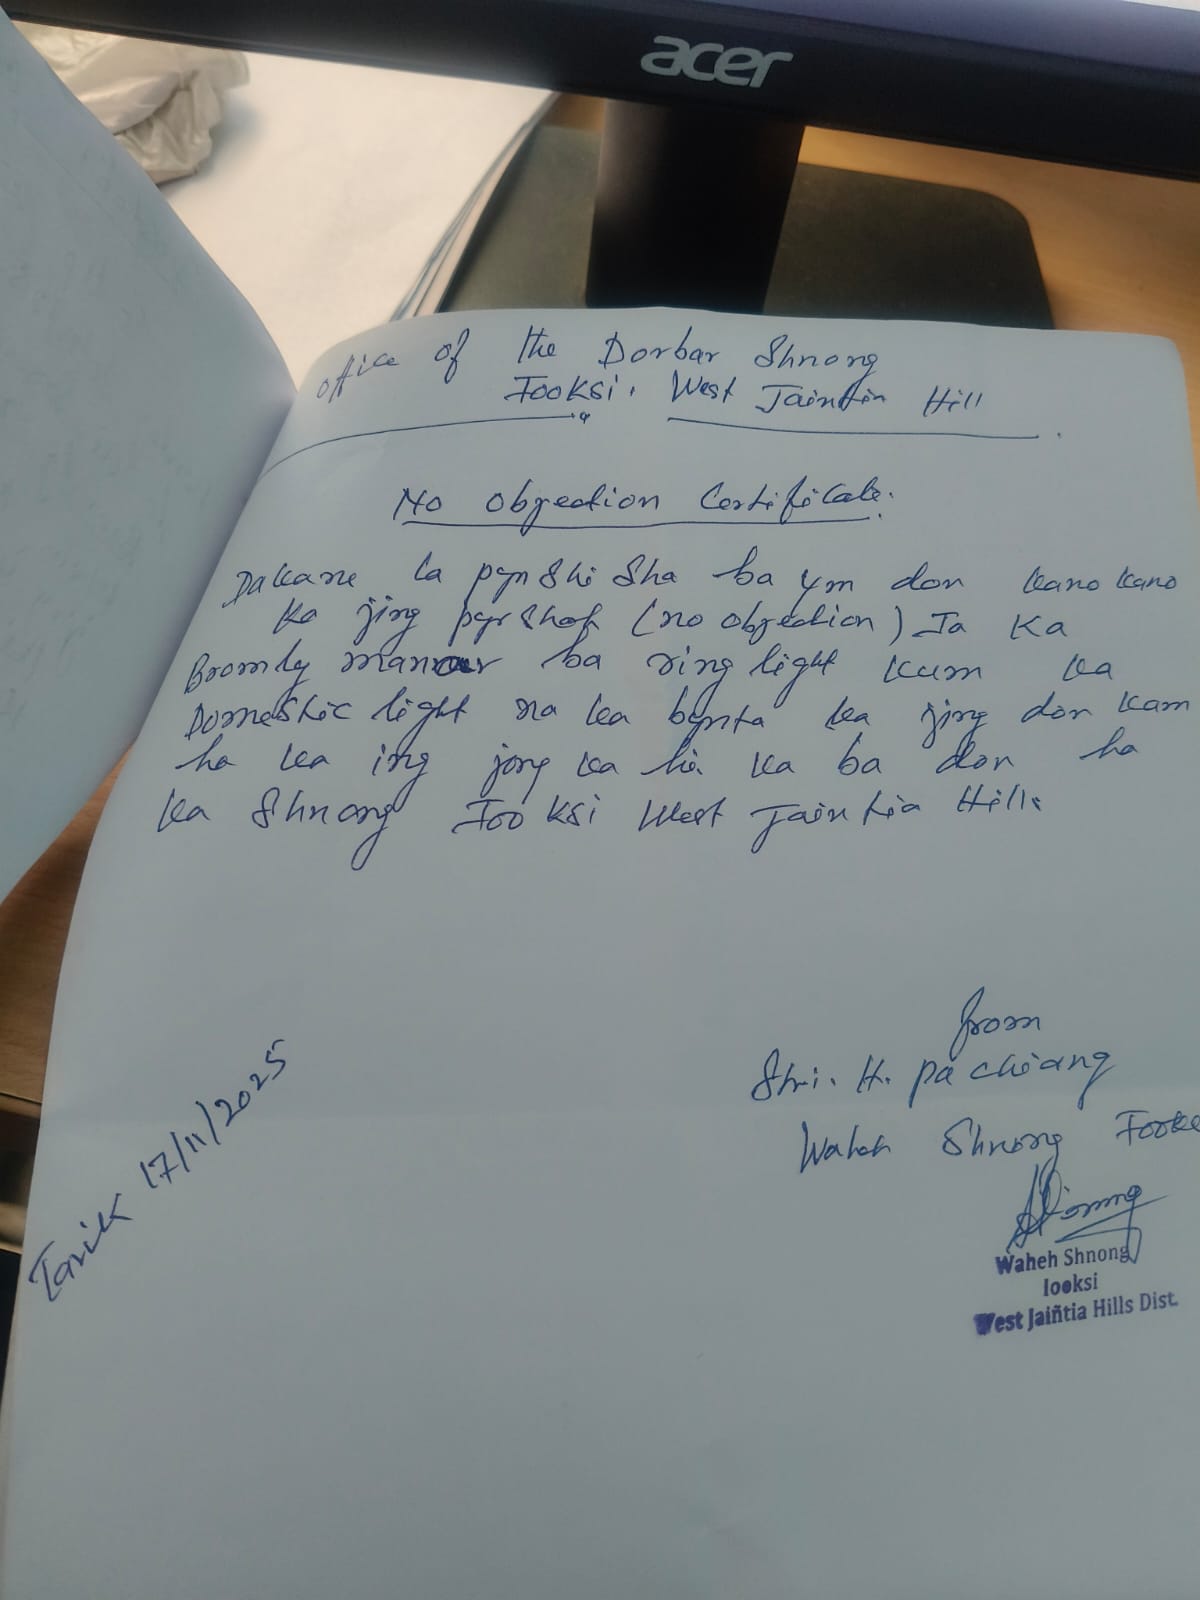 acer
Office of the Dorbar Shnong
Iooksi. West Jaintia Hill
No Objection Certificate.
Da kane la pyn shi sha ba ym don kano kano
ka jing pyrshah (no objection) Ia Ka
Bromly manar ba ring light kum ka
Domestic light na ka bynta ka jing don kam
ha ka ing jong ka hi ka ba don ha
ka Shnong Iooksi West Jaintia Hills
from
Shri. H. Pachiang
Waheh Shnong
Tarik 17/11/2025
Waheh Shnong
Iooksi
West Jaiñtia Hills Dist.